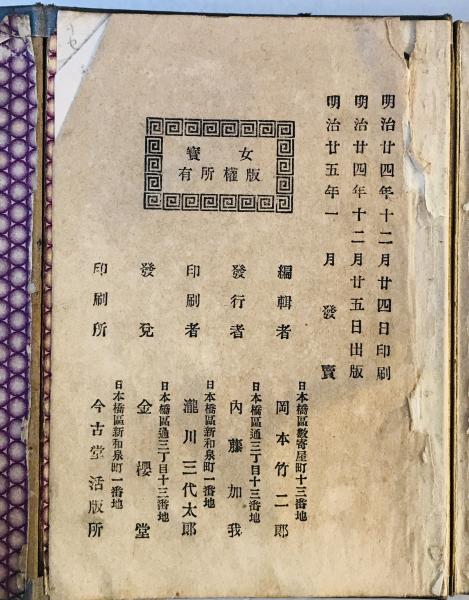 明治廿四年十二月廿四日印刷
明治廿四年十二月廿五日出版
明治廿五年一月發賣
女寳
版權所有
編輯者
日本橋區數寄屋町十三番地
岡本竹二郎
發行者
日本橋區通三丁目十三番地
內藤加我
印刷者
日本橋區新和泉町一番地
瀧川三代太郎
發兌
日本橋區通三丁目十三番地
金櫻堂
印刷所
日本橋區新和泉町一番地
今古堂活版所